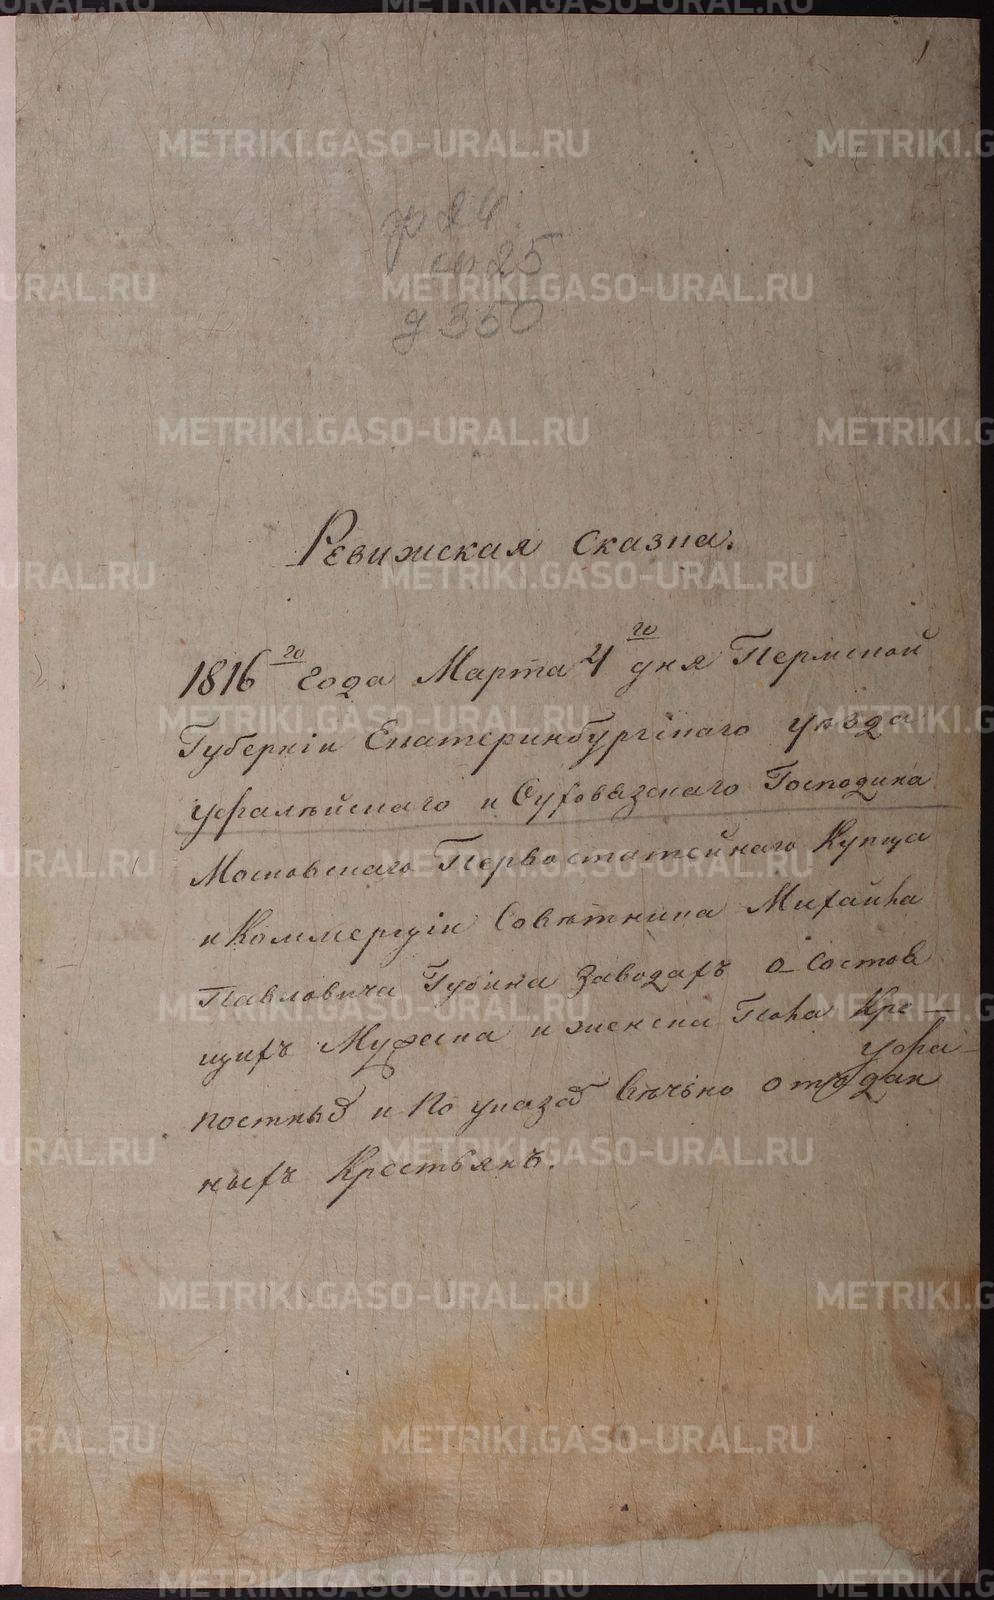 1
ф 24
ор 25
д 350
Ревижская сказка.
1816го Года Марта 4го дня Пермской
Губернiи Екатеринбургскаго уѣзда
Уфалѣйскаго и Суховязскаго Господина
Московскаго Первостатейнаго Купца
и Коммерцiи Совѣтника Михайла
Павловича Губина заводахъ о состоя
щихъ Мужеска и женска Пола Кре
постныхъ и по указу вѣчьно отодан
ныхъ Крестьянъ.
METRIKI.GASO-URAL.RU